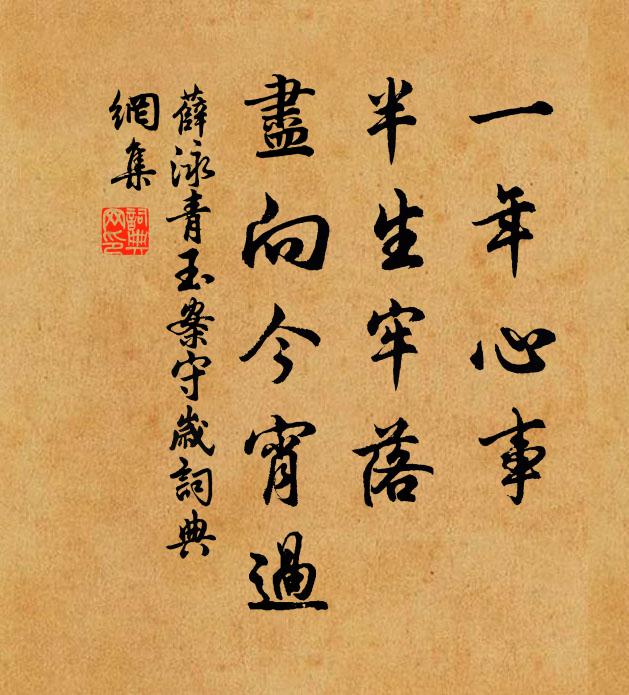 一年心事
半生牢落
盡向今宵過
薛泳青玉案守歲詞典
網集
詞典
网印